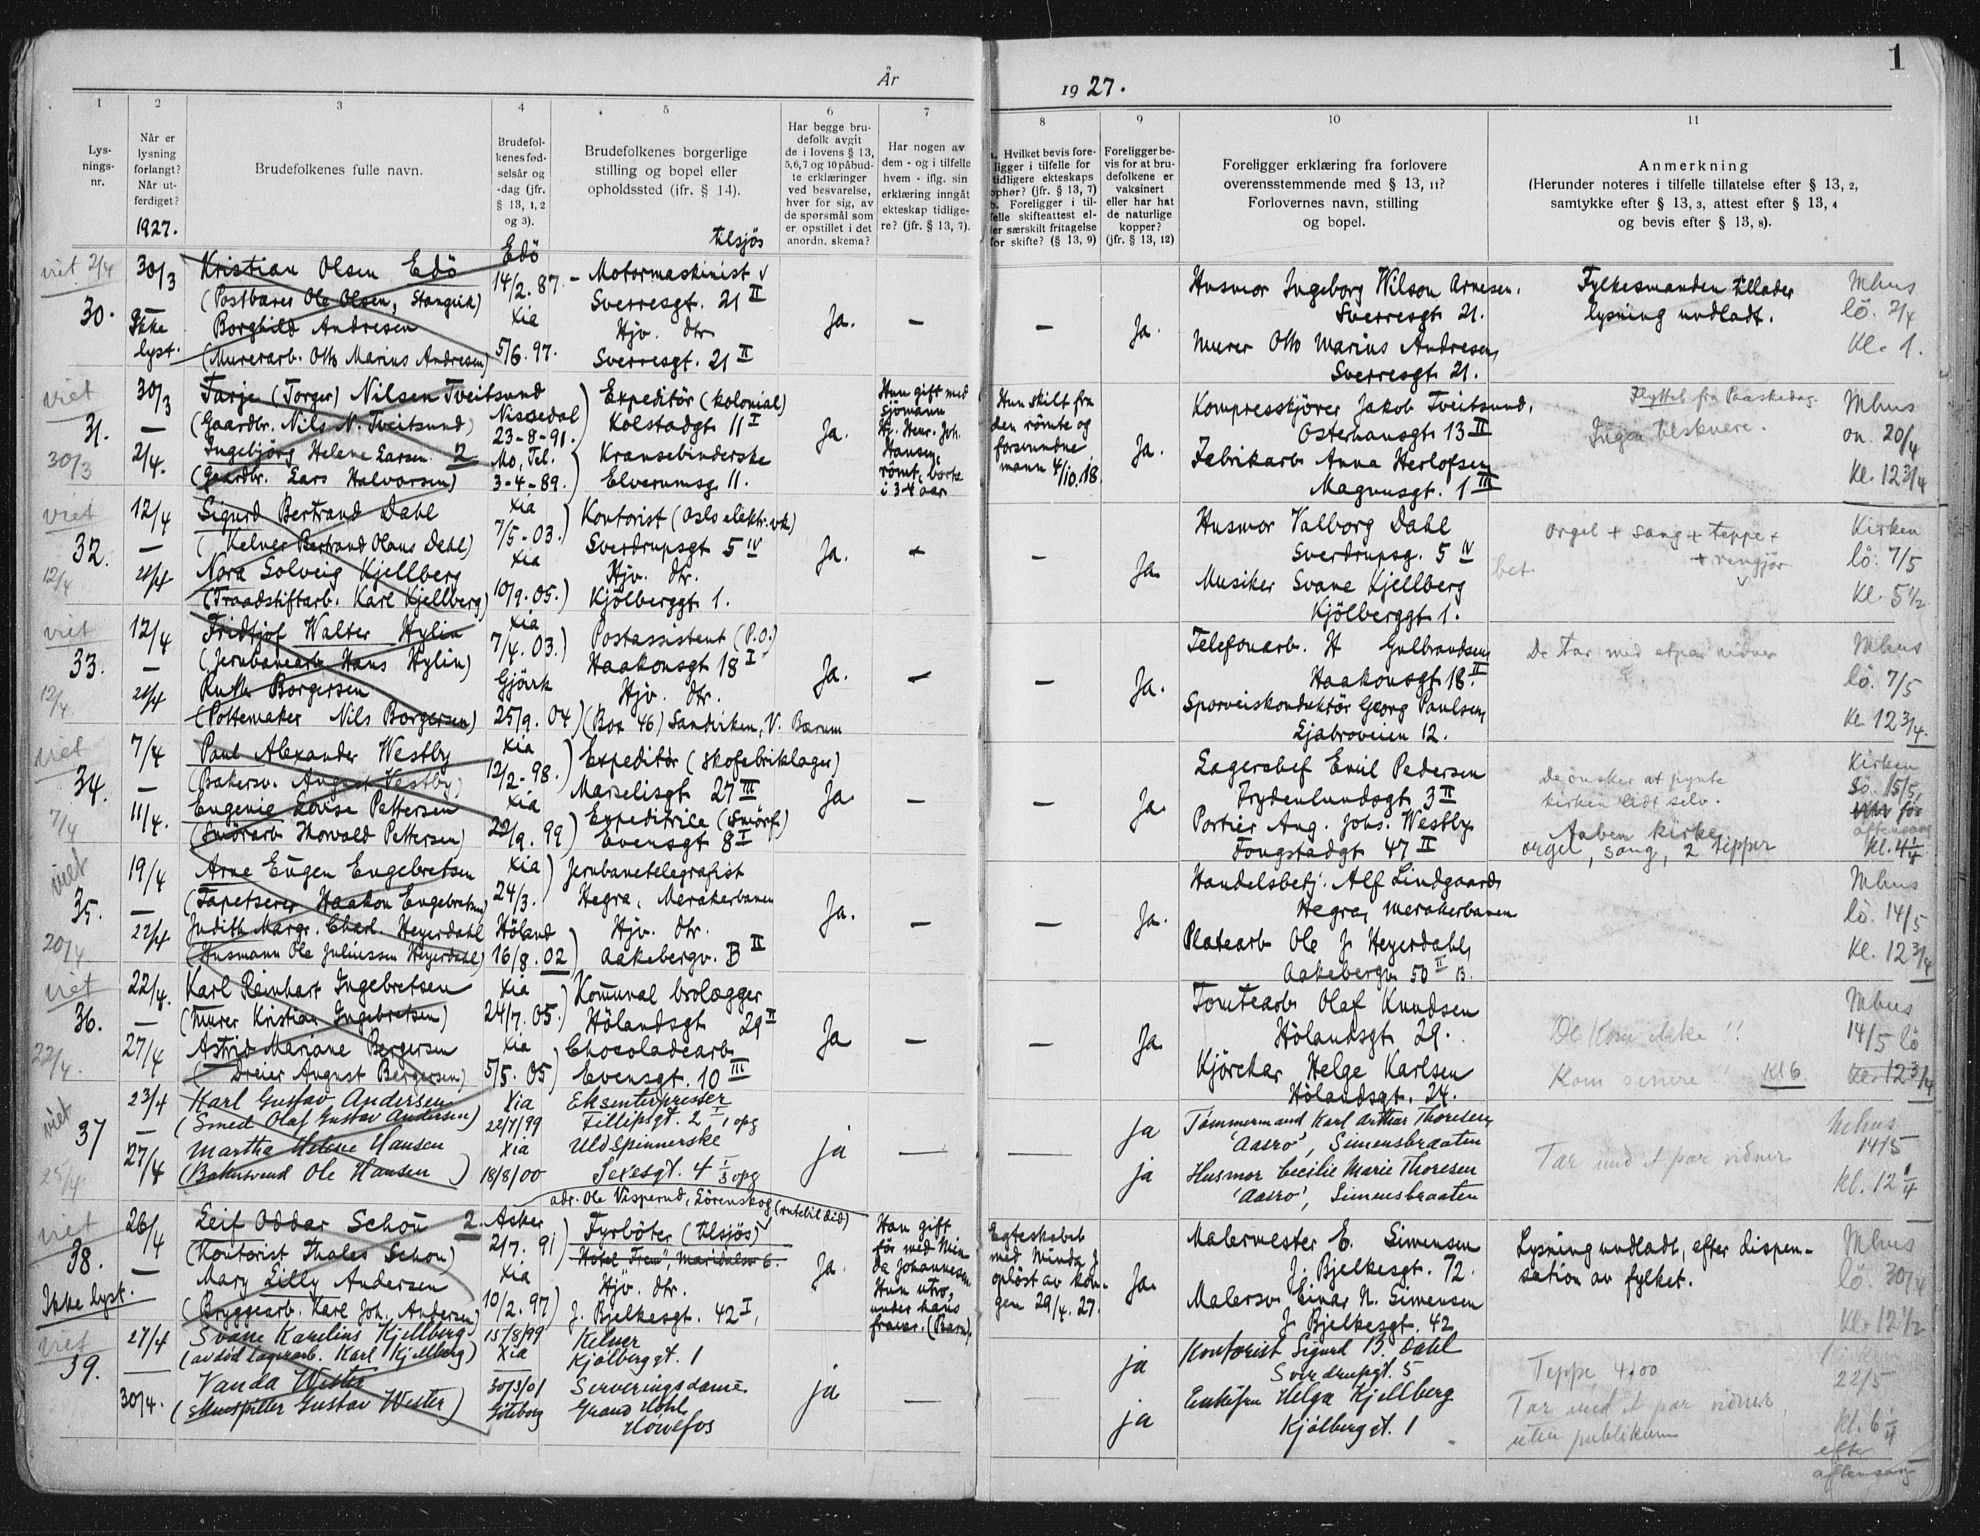 1
År 1927.
1
Lys-
nings-
nr.
2
Når er
lysning
forlangt?
Når ut-
ferdiget?
1927.
3
Brudefolkenes fulle navn.
4
Brudefol-
kenes fød-
selsår og
-dag (jfr.
§ 13, 1, 2
og 3).
5
Brudefolkenes borgerlige
stilling og bopel eller
opholdssted (ifr. § 14).
6
Har begge bru-
defolk avgit
de i lovens § 13,
5,6,7 og 10 påbud-
te erklæringer
ved besvarelse,
hver for sig, av
de spørsmål som
er opstillet i det
anordn. skema?
7
Har nogen av
dem - og i tilfelle
hvem - iflg. sin
erklæring inngåt
ekteskap tidlige-
re? (jfr. § 13, 7).
8
Hvilket bevis fore-
ligger i tilfelle for
tidligere ekteskaps
opher? (jfr. § 13, 7)
b. Foreligger i til-
felle skifteattest el-
ler særskilt fritagelse
for skifte? (§ 13, 9)
9
Foreligger be-
vis for at bru-
defolkene er
vaksinert
eller har hat
de naturlige
kopper?
(jfr. § 13, 12)
10
Foreligger erklæring fra forlovere
overensstemmende med § 13, 11?
Forlovernes navn, stilling
og bopel.
11
Anmerkning
(Herunder noteres i tilfelle tillatelse efter § 13, 2,
samtykke efter § 13, 3, attest efter § 13, 4
og bevis efter § 13, 8).
viet 2/4
30.
30/3
—
Ikke
lyst.
Kristian Olsen Edö
(Postbærer Ole Olsen, Stangvik)
Borghild Andresen
(Murerarb. Otto Marius Andresen)
Edö
14/2. 87.
Xia
5/6. 97.
tilsjös
Motormaskinist
Sverresgt. 21 II
Hjv. dtr
Sverresgt. 21 II
Ja.
—
—
Ja.
Husmor Ingeborg Wilson Arnesen.
Sverresgt 21.
Murer Otto Marius Andresen,
Sverresgt 21.
Fylkesmanden tillader
lysning undladt.
Mhus
lö. 2/4
Kl. 1.
viet
31.
30/3
30/3
—
2/4.
Tarje (Torger) Nilsen Tveitsund
(Gaardbr. Nils N. Tveitsund)
Ingebjörg Helene Larsen. 2
(Gaardbr. Lars Halvorsen)
Nissedal
23-8-91.
Mo, Tel.
3-4-89.
Expeditör (kolonial)
Kolstadgt 11 I
Kransebinderske
Elverumsg 11.
Ja.
Hun gift med
sjömann
Hj. Henr. Joh.
Hansen,
römt, borte
i 3-4 aar
Hun skilt fra
den römte og
forsvundne
mann 4/10.18.
Ja.
Kompresskjörer Jakob Tveitsund,
Osterhausgt 13 II
Fabrikarb Anna Herlofsen
Magnusgt. 1 III
Flyttet fra Paaskedag.
Ingen tilskuere.
Mhus
on. 20/4
Kl. 12 3/4
viet
32.
12/4
12/4
—
21/4
Sigurd Bertrand Dahl
(Kelner Bertrand Olaus Dahl)
Nora Solveig Kjellberg
(Traadstiftarb. Karl Kjellberg)
Xia
7/5-03.
Xia
10/9. 05.
Kontorist (Oslo elektr.vk)
Sverdrupsgt 5 IV
Hjv. dtr.
Kjölberggt 1.
Ja.
—
—
Ja.
Husmor Valborg Dahl
Sverdrupsg. 5 IV
Musiker Svane Kjellberg
Kjölberggt 1.
bet.
orgel + sang + teppe +
+ rengjör
Kirken
lö. 7/5
Kl. 5 1/2
viet
33.
12/4
12/4
—
21/4
Fridtjof Walter Hylin
(Jernbanearb Hans Hylin)
Ruth Borgersen
(Pottemaker Nils Borgersen)
Xia
7/4. 03.
Gjövik
25/9. 04
Postassistent (P.O.)
Haakonsgt 18 I
Hjv. dtr.
(Box 46) Sandviken, V. Bærum
Ja.
—
—
Ja.
Telefonarb. H Gulbrandsen
Haakonsgt 18. II
Sporveiskonduktör Georg Paulsen,
Ljabroveien 12.
De tar med etpar vidner
Mhus
lö. 7/5
Kl 12 3/4.
viet
34.
7/4
7/4
—
11/4.
Paul Alexander Westby
(Bakersv. August Vestby)
Eugenie Lovise Pettersen
(Smörarb Thorvald Pettersen)
Xia
12/2-98.
Xia
22/9. 99
Expeditör (skofabriklager)
Marselisgt 27 III
Expeditrice (Smörf)
Evensgt 8 I
Ja.
—
—
Ja.
Lagerchef Emil Pedersen
Frydenlundsgt 3 II
Portier Aug. Johs. Westby
Tongstadgt 47 II
De önsker at pynte
kirken lidt selv.
Aaben kirke
orgel, sang, 2 tepper
Kirken
Sö. 15/5,
för
aftensang
kl. 4 1/4
viet
35.
20/4
19/4
—
22/4
Arne Eugen Engebretsen
(Tapetserer Haakon Engebretsen)
Judith Margr. Charl. Heyerdahl
(Husmann Ole Juliussen Heyerdahl)
Xia
24/3.
Höland
16/8. 02
Jernbanetelegrafist
Hegra, Merakerbanen
Hjv. dtr.
Aakebergv. B II
Ja.
—
—
Ja.
Handelsbetj. Alf Lindgaard,
Hegra, Merakerbanen
Platearb Ole J. Heyerdahl,
Aakebergv 50 II B.
Mhus
lö. 14/5
Kl. 12 3/4
viet
36.
22/4.
22/4.
—
27/4
Karl Reinhart Ingebretsen
(Murer Kristian Ingebretsen)
Astrid Mariane Bergersen
(Dreier August Bergersen)
Xia
24/7. 05.
Xia
5/5. 05
Komunal brolægger
Hölandsgt 29 II
Chocoladearb
Evensgt. 10 III
Ja
—
—
Ja
Tomtearb Olaf Knudsen
Hölandsgt 29.
Kjörekar Helge Karlsen
Hölandsgt. 24.
De kom ikke!!
Kom senere!! Kl 6
Mhus
14/5 lö
Kl. 12 3/4
viet
37
25/4
23/4
—
27/4
Karl Gustav Andersen
(Smed Olaf Gustav Andersen)
Martha Helene Hansen
(Bakersvend Ole Hansen)
Xia
22/7/99
Xia
18/8/00
Eksenterpresser
Fillipsgt. 2 I, opg
Uldspinnerske
Sexesgt. 4 I/3 opg
ja
—
—
ja
ja
Tömmermand Karl Arthur Thoresen,
"Aasro", Simensbraaten
Husmor Cecilie Marie Thoresen
"Aasro", Simensbraaten
Tar med et par vidner
Mhus
14/5
kl. 12 1/4
viet
38.
Ikke lyst.
26/4
—
Leif Oddar Schou 2.
(Kontorist Thales Schou)
Mary Lilly Andersen
(Bryggearb. Karl Joh. Andersen)
Asker
2/7. 91
Xia
10/2. 97
adr. Ole Visperud, Lörenskog (rutebil did)
Fyrböter (tilsjös)
Hotel "Frem", Maridalsv 6.
Hjv. dtr.
J. Bjelkesgt. 42 I,
Ja.
Han gift
för med Min
da Johannesen
Hun utro,
under hans
fravær. (Barn).
Egteskabet
med Minda J.
oplöst av kon-
gen 29/4. 27.
Ja.
Malermester E. Simensen
J. Bjelkesgt. 72.
Malersv Einar N. Simensen
J. Bjelkesgt. 42
Lysning undladt, efter dispen-
sation av fylket.
Mhus
lö. 30/4
Kl. 12 1/2
viet
39.
27/4
—
30/4.
Svane Karelius Kjellberg
(avdöd Lagerarb. Karl Kjellberg)
Vanda Wester
(Gustav Wester)
15/8/99
Xia
30/3/01
Göteborg
Kelner
Kjölberggt. 1
Serveringsdame
Grand Hotel
Hönefos
ja
—
—
ja
ja
Kontorist Sigurd B. Dahl
Sverdrupsgt. 5
Enkefru Helga Kjellberg
Kjölberggt. 1
Teppe 4,00
Tar med et par vidner
uten publikum
22/5
kl. 6 1/4
efter
aftensang